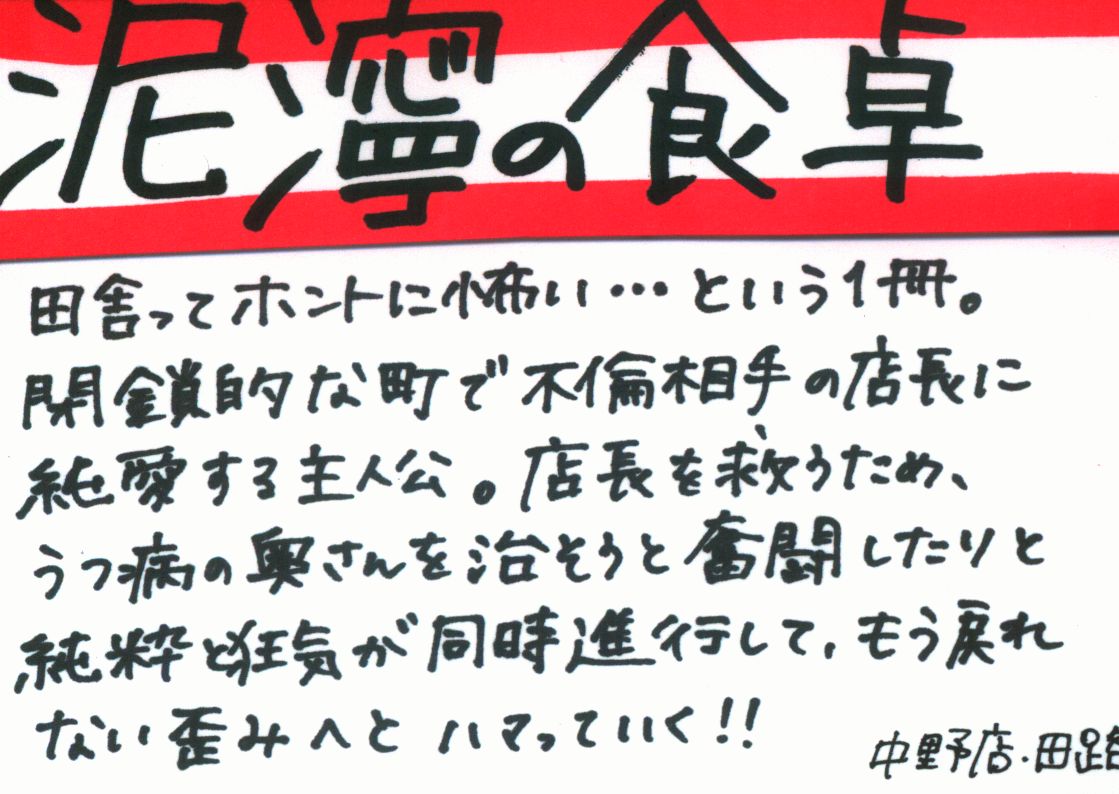 泥濘の食卓
田舎ってホントに怖い…という1冊。
閉鎖的な町で不倫相手の店長に
純愛する主人公。店長を救うため、
うつ病の奥さんを治そうと奮闘したりと
純粋と狂気が同時進行して、もう戻れ
ない歪みへとハマっていく!!
中野店・田路